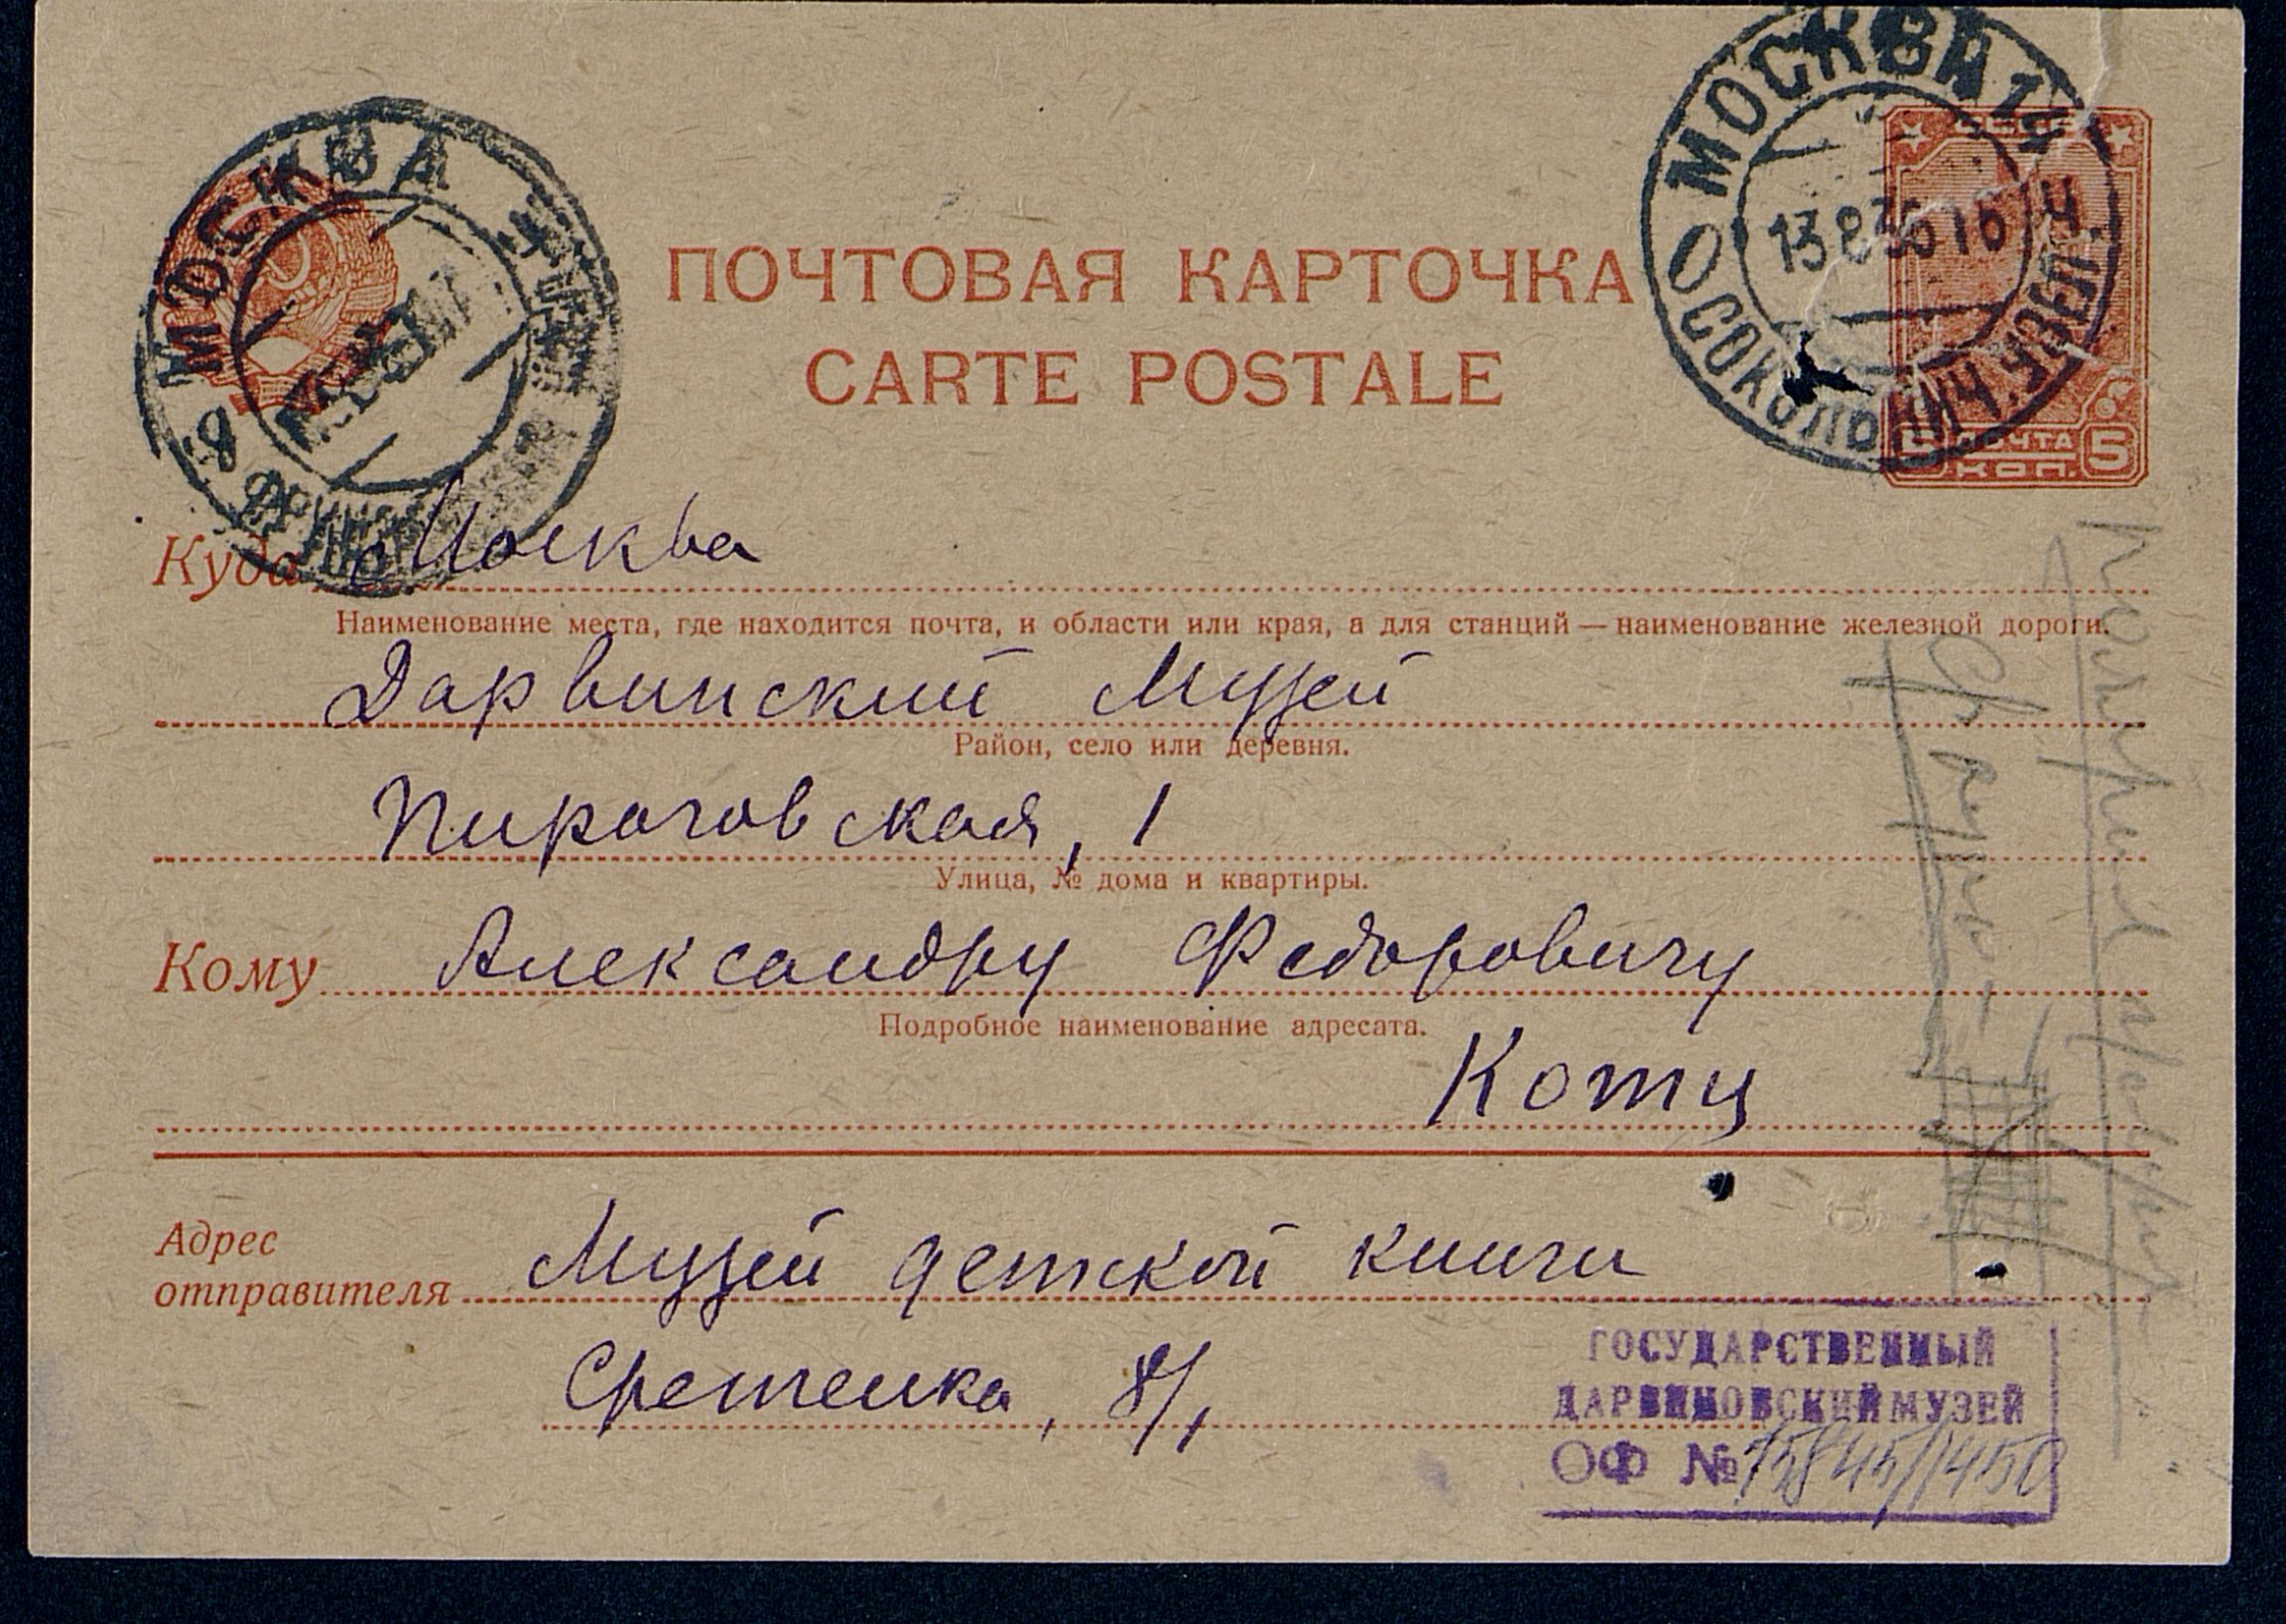 МОСКВА
МОСКВА 19
13 8 36 16
СОКОЛЬНИЧ. УЗЕЛ.
ПОЧТОВАЯ КАРТОЧКА
CARTE POSTALE
5 ПОЧТА 5
КОП.
Куда Москва
Наименование места, где находится почта, и области или края, а для станций — наименование железной дороги.
Дарвинский Музей
Район, село или деревня.
Пироговская, 1
Улица, № дома и квартиры.
Кому Александру Федоровичу
Подробное наименование адресата.
Котц
Адрес
отправителя Музей детской книги
Сретенка, 8/1
ГОСУДАРСТВЕННЫЙ
ДАРВИНОВСКИЙ МУЗЕЙ
ОФ № 15845/1450